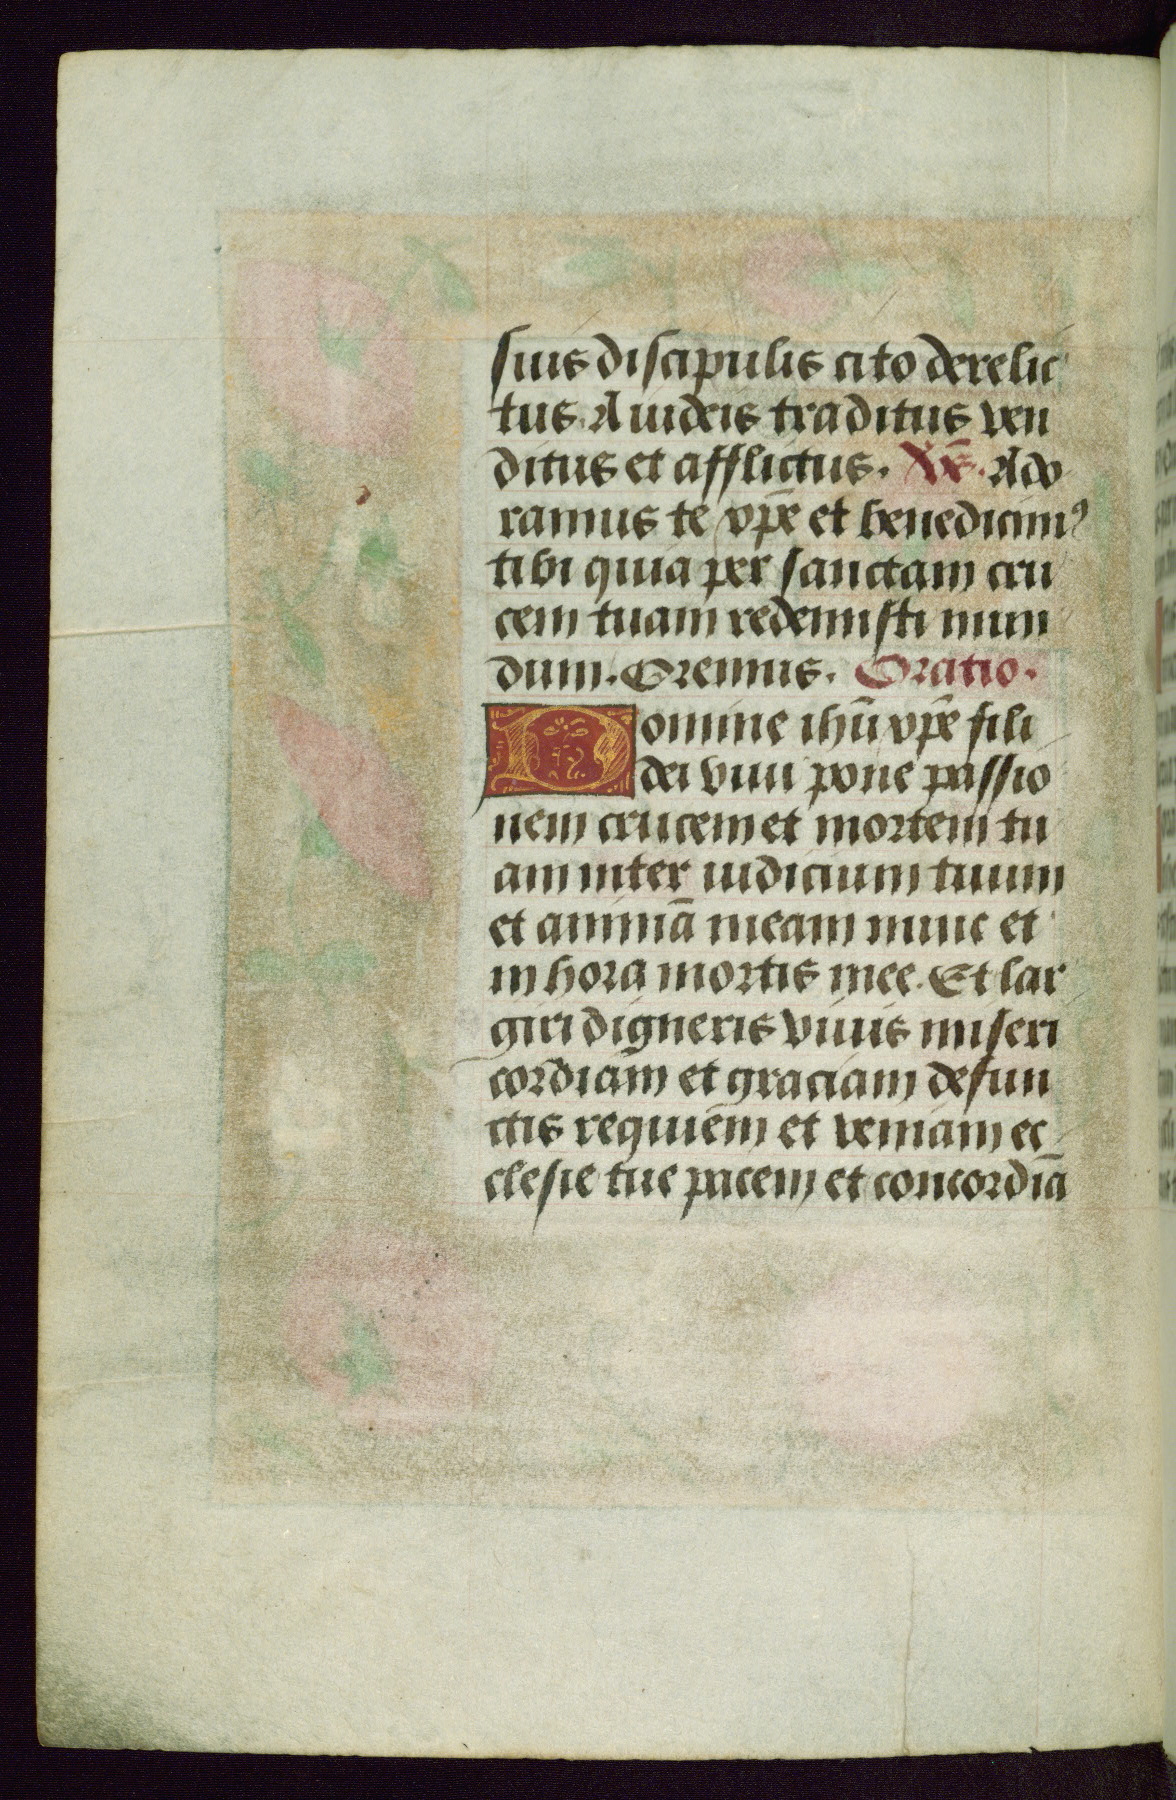 suis discipulis cito derelic
tus. A iudeis traditus ven
ditus et afflictus. Vs̄. Ado
ramus te xp̄e et benedicim⁹
tibi quia per sanctam cru
cem tuam redemisti mun
dum. Oremus. Oratio.
Domine ihū xp̄e fili
dei viui pone passio
nem crucem et mortem tu
am inter iudicium tuum
et animā meam nunc et
in hora mortis mee. Et lar
giri digneris viuis miseri
cordiam et graciam defun
ctis requiem et veniam ec
clesie tue pacem et concordiā